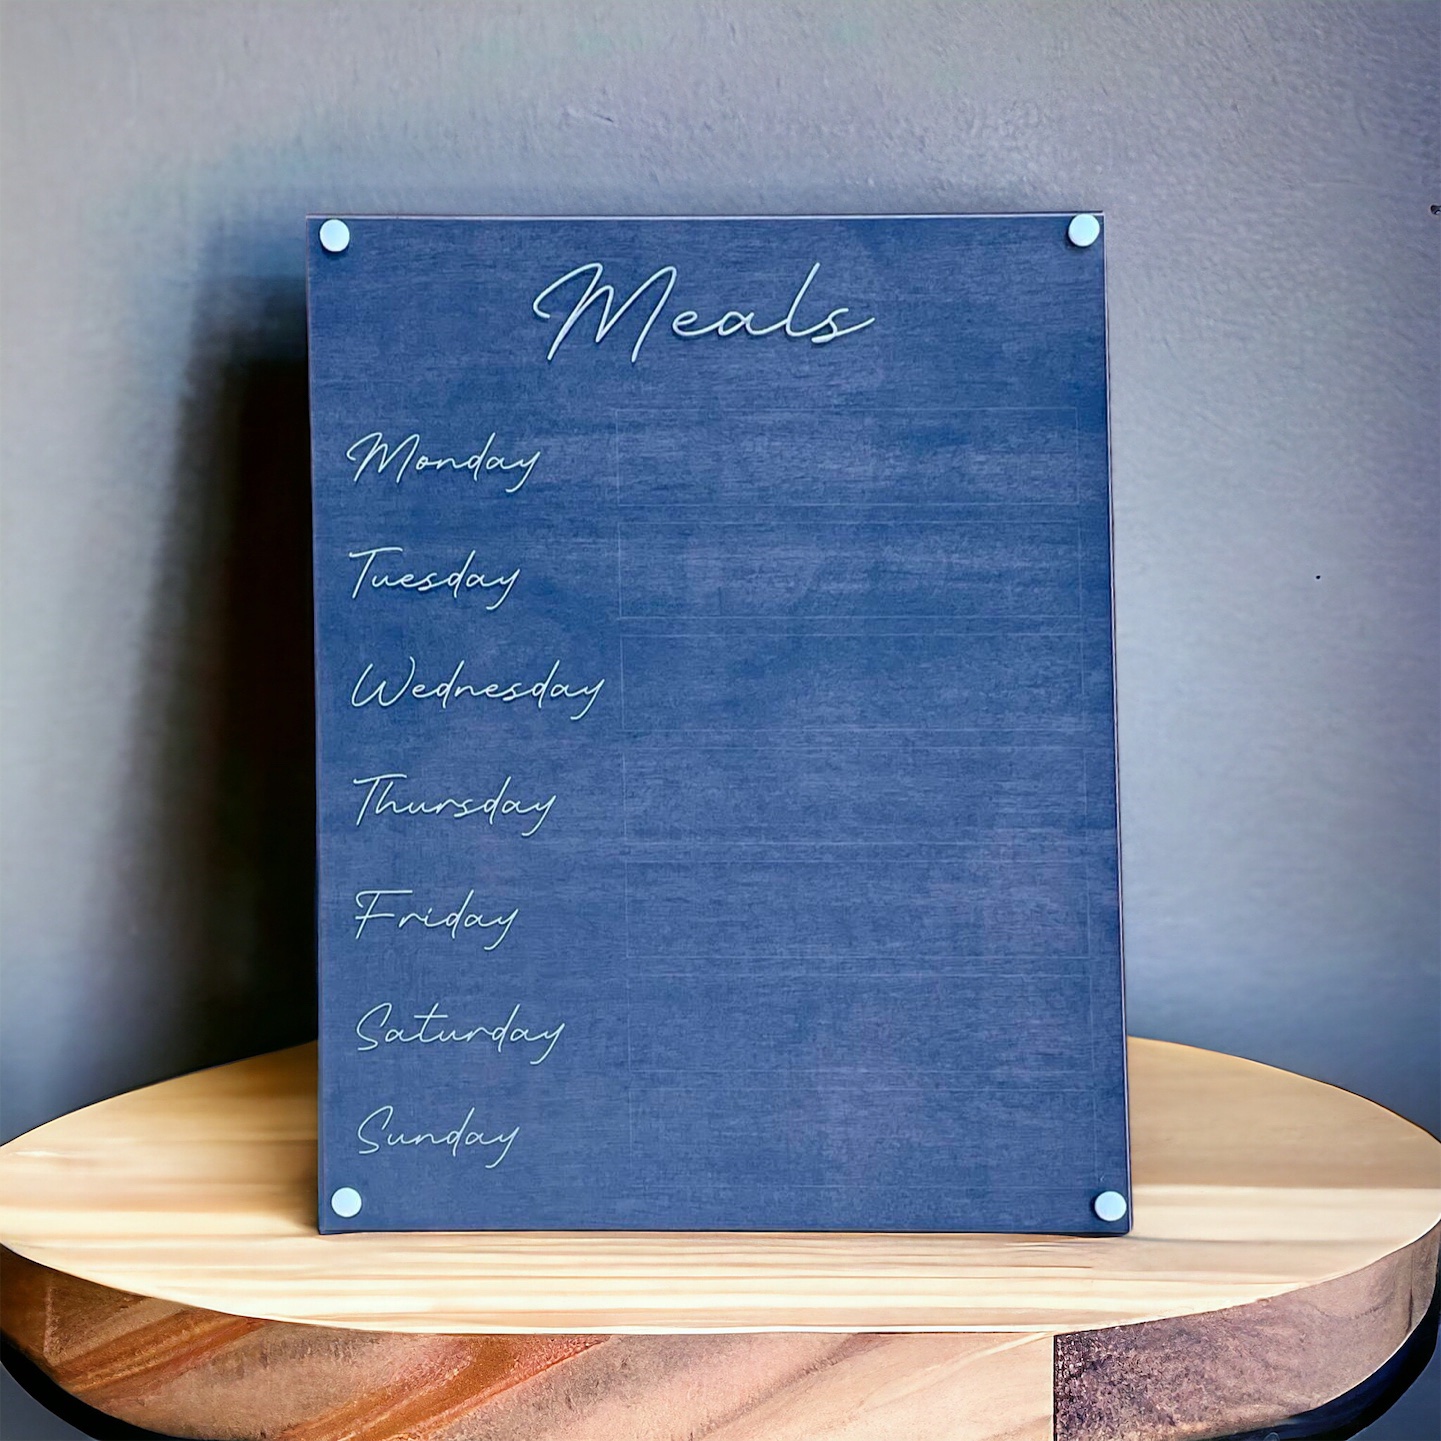 Meals
Monday
Tuesday
Wednesday
Thursday
Friday
Saturday
Sunday